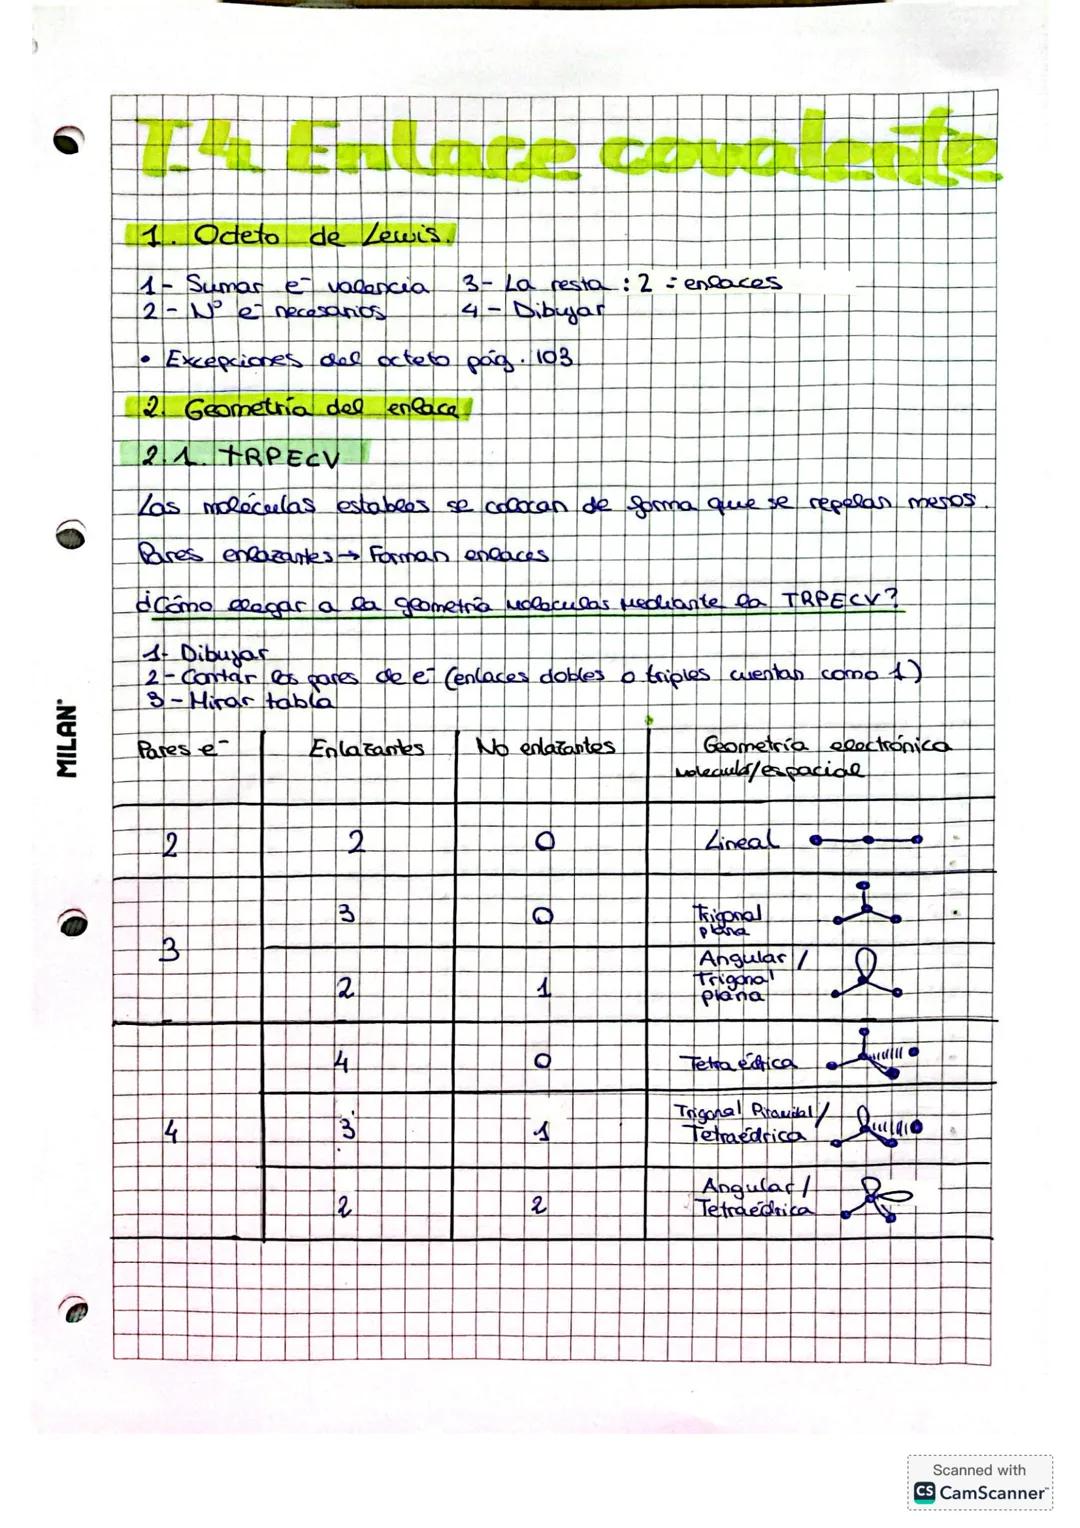 T.4 Enlace covalente
1. Octeto de Lewis.
1- Sumar e⁻ valencia 3- La resta : 2 = enlaces
2- Nº e⁻ necesarios 4- Dibujar
• Excepciones del octeto pág. 103
2. Geometría del enlace
2.1. TRPECV
Las moléculas estables se colocan de forma que se repelan menos.
Pares enlazantes → Forman enlaces
¿Cómo llegar a la geometría moleculas mediante la TRPECV?
1- Dibujar
2- Contar los pares de e⁻ (enlaces dobles o triples cuentan como 1)
3- Mirar tabla
Pares e⁻ Enlazantes No enlazantes Geometría electrónica
molecular/espacial
2 2 0 Lineal
3 0 Trigonal
plana
3
2 1 Angular /
Trigonal
plana
4 0 Tetraédrica
4 3 1 Trigonal Piramidal /
Tetraédrica
2 2 Angular /
Tetraédrica
MILAN
Scanned with
CS CamScanner